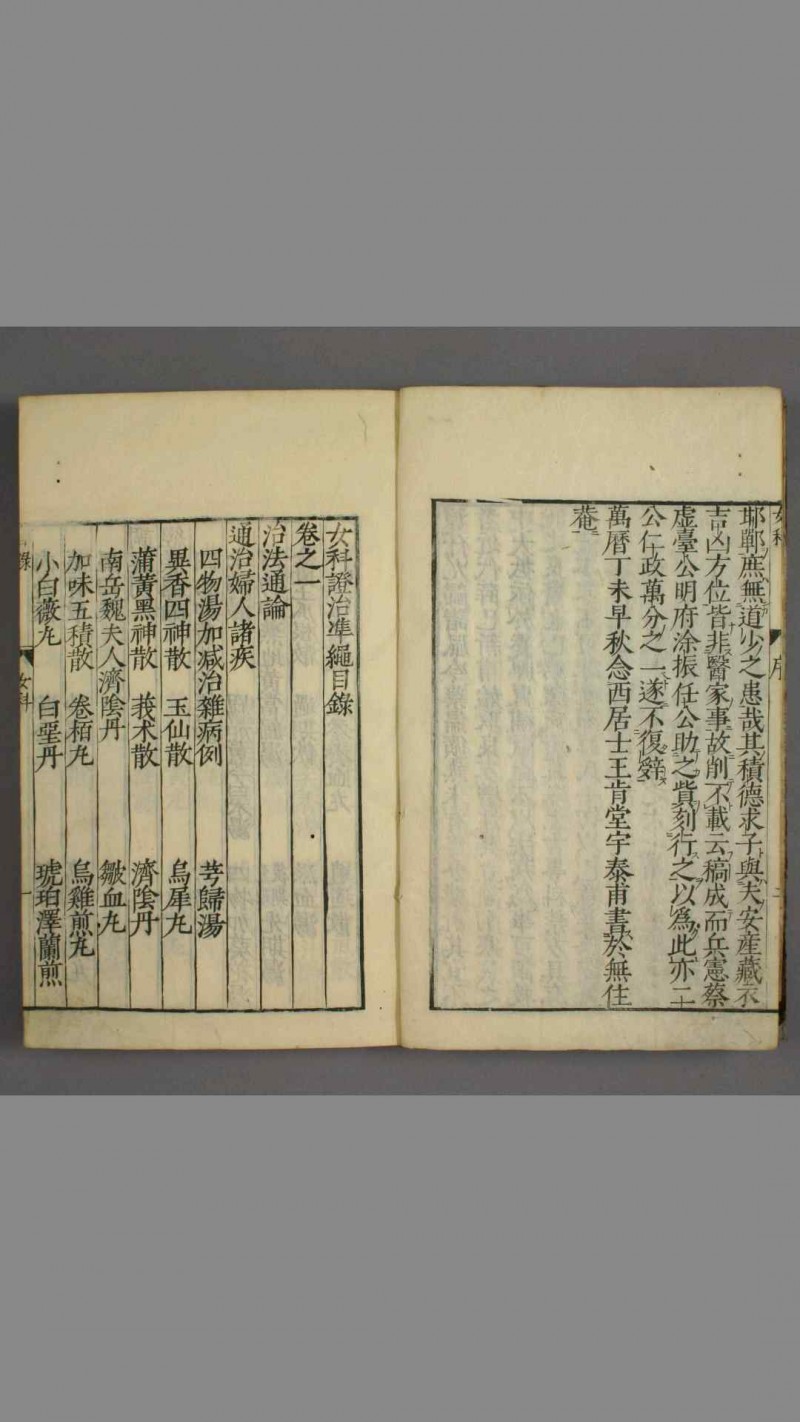 女科
序
二
耶鄲庶無道少之患哉其積德求子與夫安産藏衣
吉凶方位皆非醫家事故削不載云稿成而兵憲蔡
虚臺公明府涂振任公助之貲刻行之以爲此亦二
公仁政萬分之一遂不復辤
萬曆丁未早秋念西居士王肯堂宇泰甫書於無住
菴
女科證治準繩目錄
卷之一
治法通論
通治婦人諸疾
四物湯加减治雜病例 芎歸湯
異香四神散 玉仙散 烏犀丸
蒲黄黑神散 莪术散 濟陰丹
南岳魏夫人濟陰丹 皺血丸
加味五積散 卷栢丸 烏雞煎丸
小白薇丸 白堊丹 琥珀澤蘭煎
女科
一